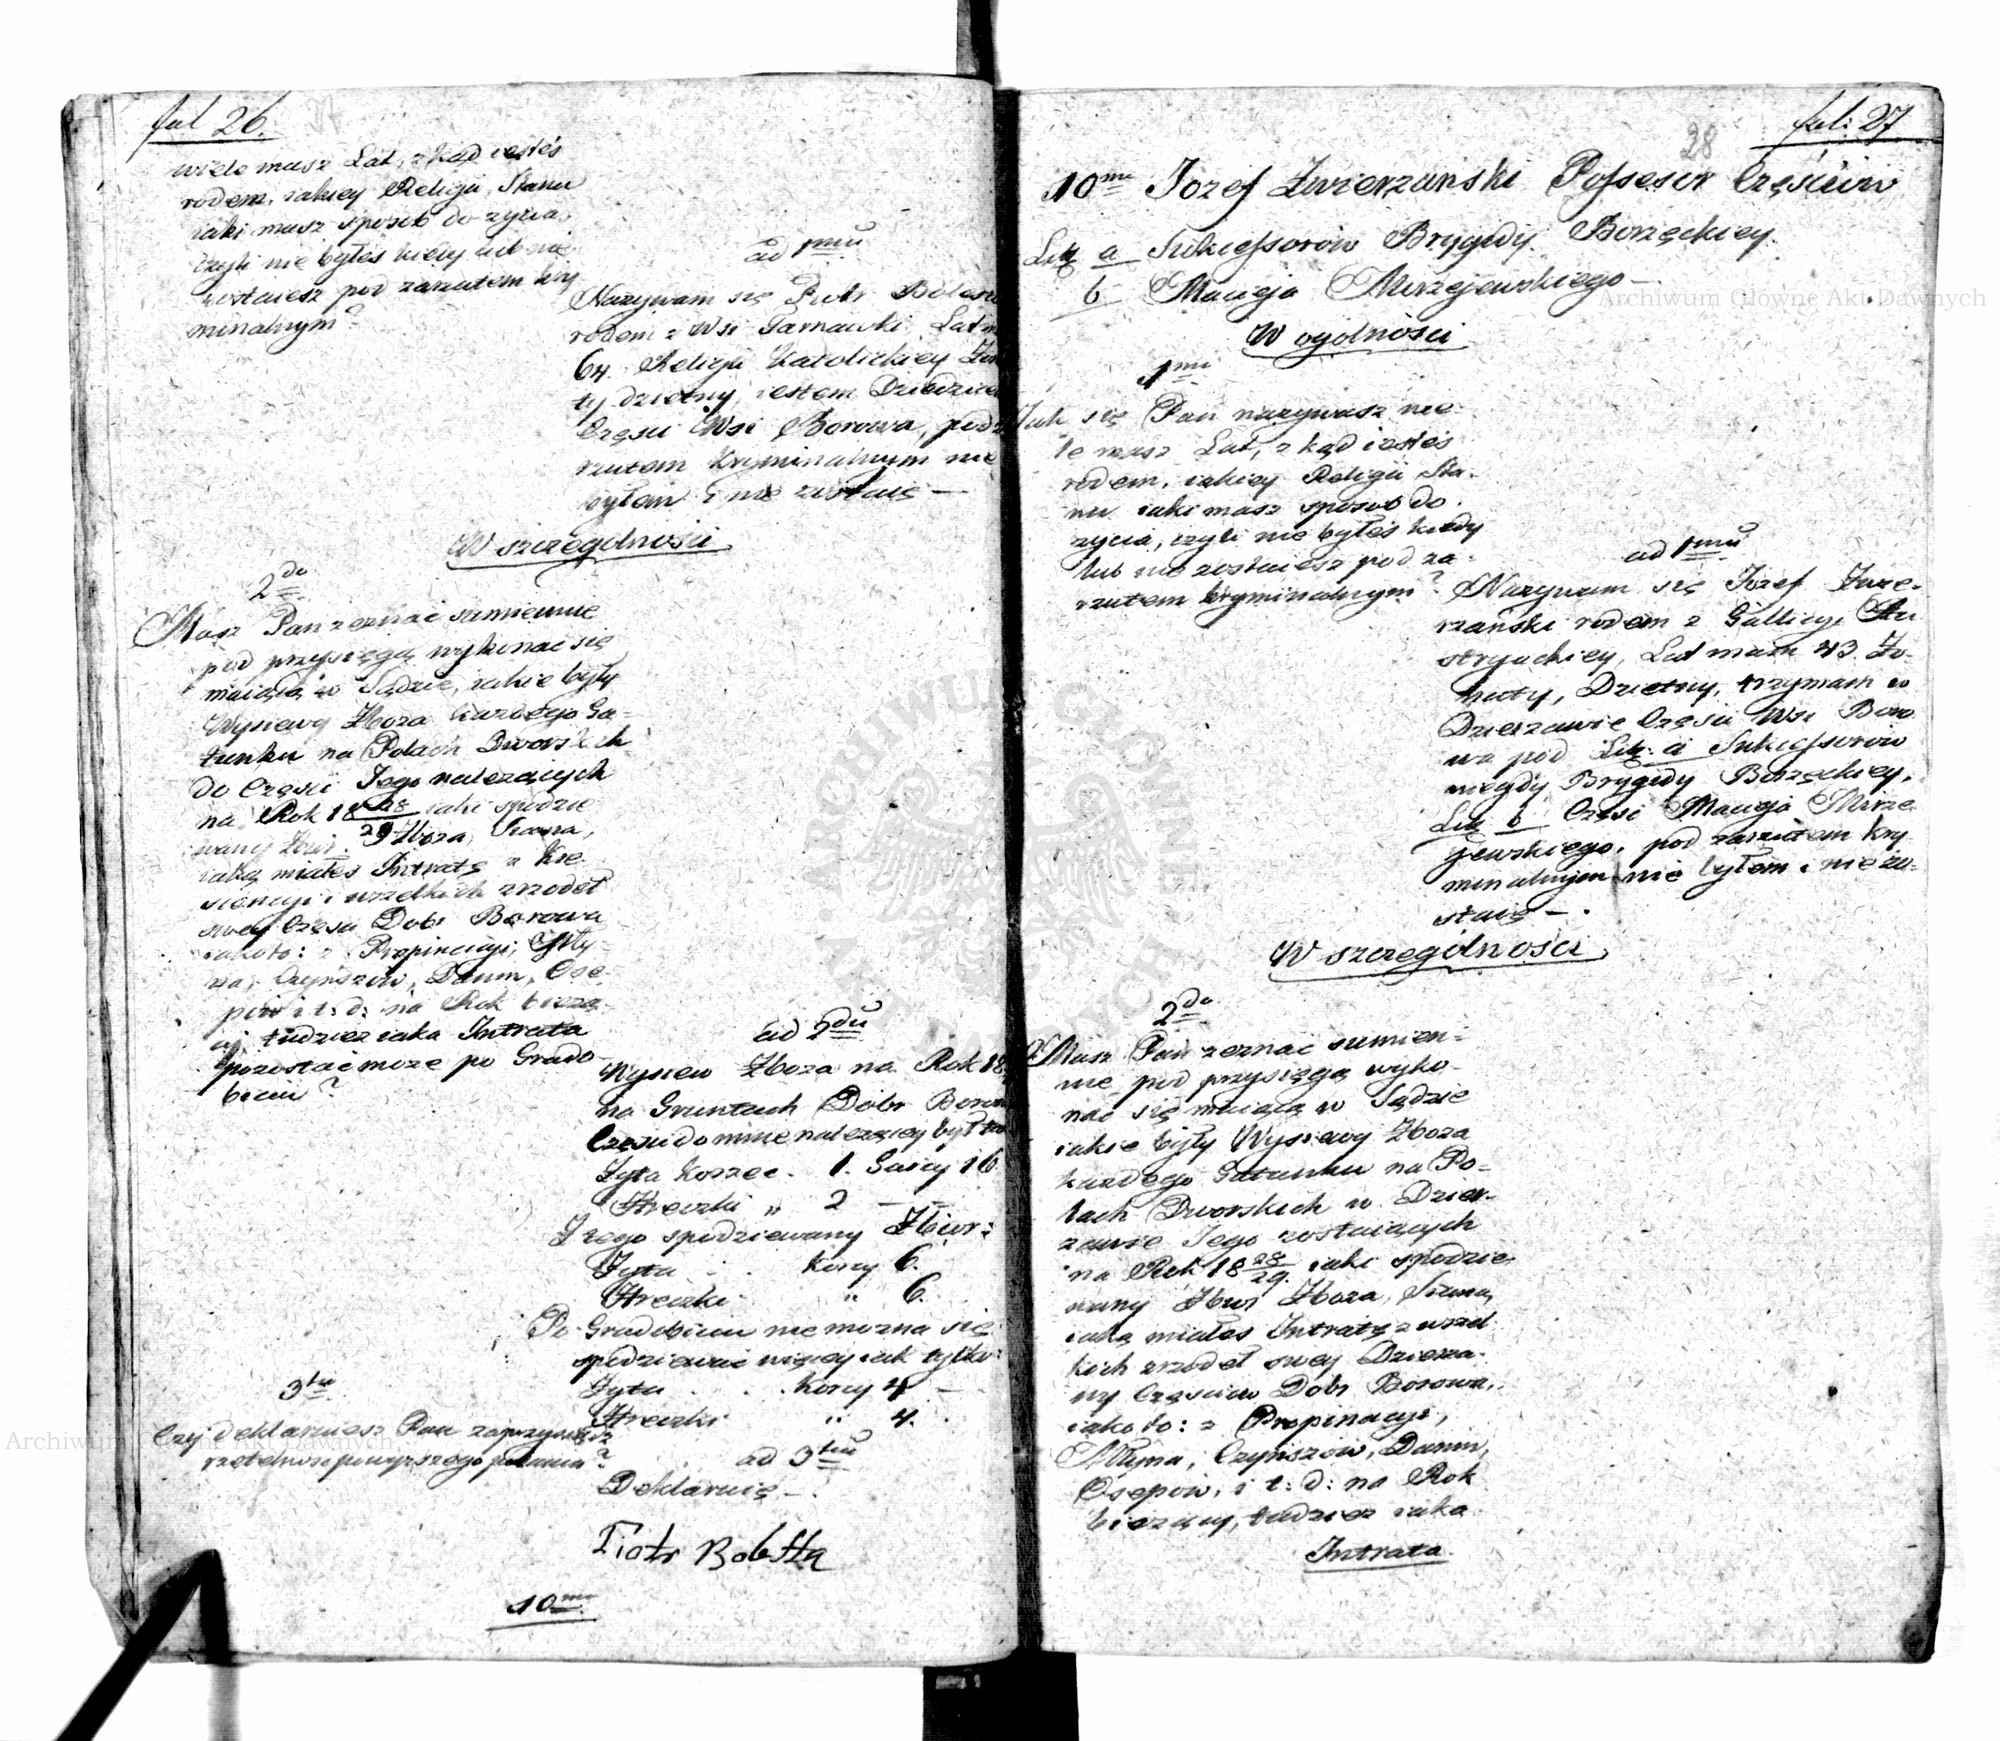 fol 26.
wiele masz Lat, z kąd iesteś
rodem, iakiey Religii, Stanu
iaki masz sposob do zycia,
czyli nie byłeś kiedy lub nie
zostaiesz pod zarzutem kry
minalnym?
ad 1mu
Nazywam się Piotr
rodem z Wsi Tarnawki, Lat
64. Religii Katolickiey
ty dzietny, iestem Dziedzic
Części Wsi Borowa, pod
rzutem kryminalnym nie
byłem i nie zostaię —
W szczegolności
2do
Masz Pan zeznać sumiennie
pod przysięgą wykonać się
maiącą w Sądzie, iakie były
Wysiewy Zboza kazdego Ga=
tunku na Polach Dworskich
do Części Jego nalezących
na Rok 18 28/29 iaki spodzie
wany Zbior Zboza, Siana,
iaką miałeś Intratę z Kre
scencyi i wszelkich zrzodeł
swey Części Dobr Borowa
iako to: z Propinacyi, Mły-
na, Czynszow, Danin, Ose-
pow i t: d: na Rok bieżą-
cy, tudziez iaka Intrata
pozostać moze po Grado-
biciu?
ad 2du
Wysiew Zboza na Rok 18
na Gruntach Dobr Borowa
Części do mnie nalezącey był
Zyta Korzec - 1. Garcy 16
Hreczki " 2 — —
Z tego spodziewany Zbior:
Zyta . . Korcy 6.
Hreczki " 6.
Po Gradobiciu nie mozna się
spodziewać więcey iak tylko:
Zyta . . . Korcy 4 —
Hreczki " 4.
3tio
Czy deklaruiesz Pan zaprzysiądz
rzetelnosc powyzszego podania?
ad 3tiu
Deklaruię —.
Piotr Bolesta
10mo
28
foli 27
10mo Jozef Zwierzanski Possesor Częściow
Litt a Sukcessorow Brygidy Borzęckiey.
b Macieja Mirzejewskiego —
W ogolności
1mo
Jak się Pan nazywasz wie-
le masz Lat, z kąd iesteś
rodem, iakiey Religii Sta-
nu iaki masz sposob do
zycia, czyli nie byłeś kiedy
lub nie zostaiesz pod za-
rzutem kryminalnym?
ad 1mu
Nazywam się Jozef Zwie-
rzański rodem z Gallicyi Au
stryackiey, Lat mam 43. Zo-
naty, Dzietny, trzymam w
Dzierzawie Części Wsi Boro
wa pod Litt: a Sukcessorow
niegdy Brygidy Borzęckiey,
Litt b Częsci Macieja Mirze
jewskiego, pod zarzutem kry
minalnym nie byłem i nie zo-
staię —.
W szczególności
2do
Masz Pan zeznać sumien=
nie pod przysięgą wyko-
nać się maiącą w Sądzie
iakie były Wysiewy Zboza
kazdego Gatunku na Po-
lach Dworskich w Dzier-
zawie Jego zostaiących
na Rok 18 28/29. iaki spodzie
wany Zbior Zboza, Siana,
iaką miałeś Intratę z wszel
kich zrzodeł swey Dzierza-
wy Częściow Dobr Borowa,
iako to: z Propinacyi,
Młyna, Czynszow, Danin,
Osepow, i t: d: na Rok
biezący, tudziez iaka
Intrata
Archiwum Główne Akt Dawnych
Archiwum Główne Akt Dawnych
ARCHIWUM GŁÓWNE AKT DAWNYCH